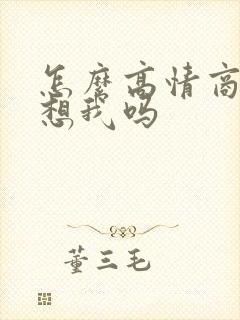 怎麼高情商
想我吗
董三毛